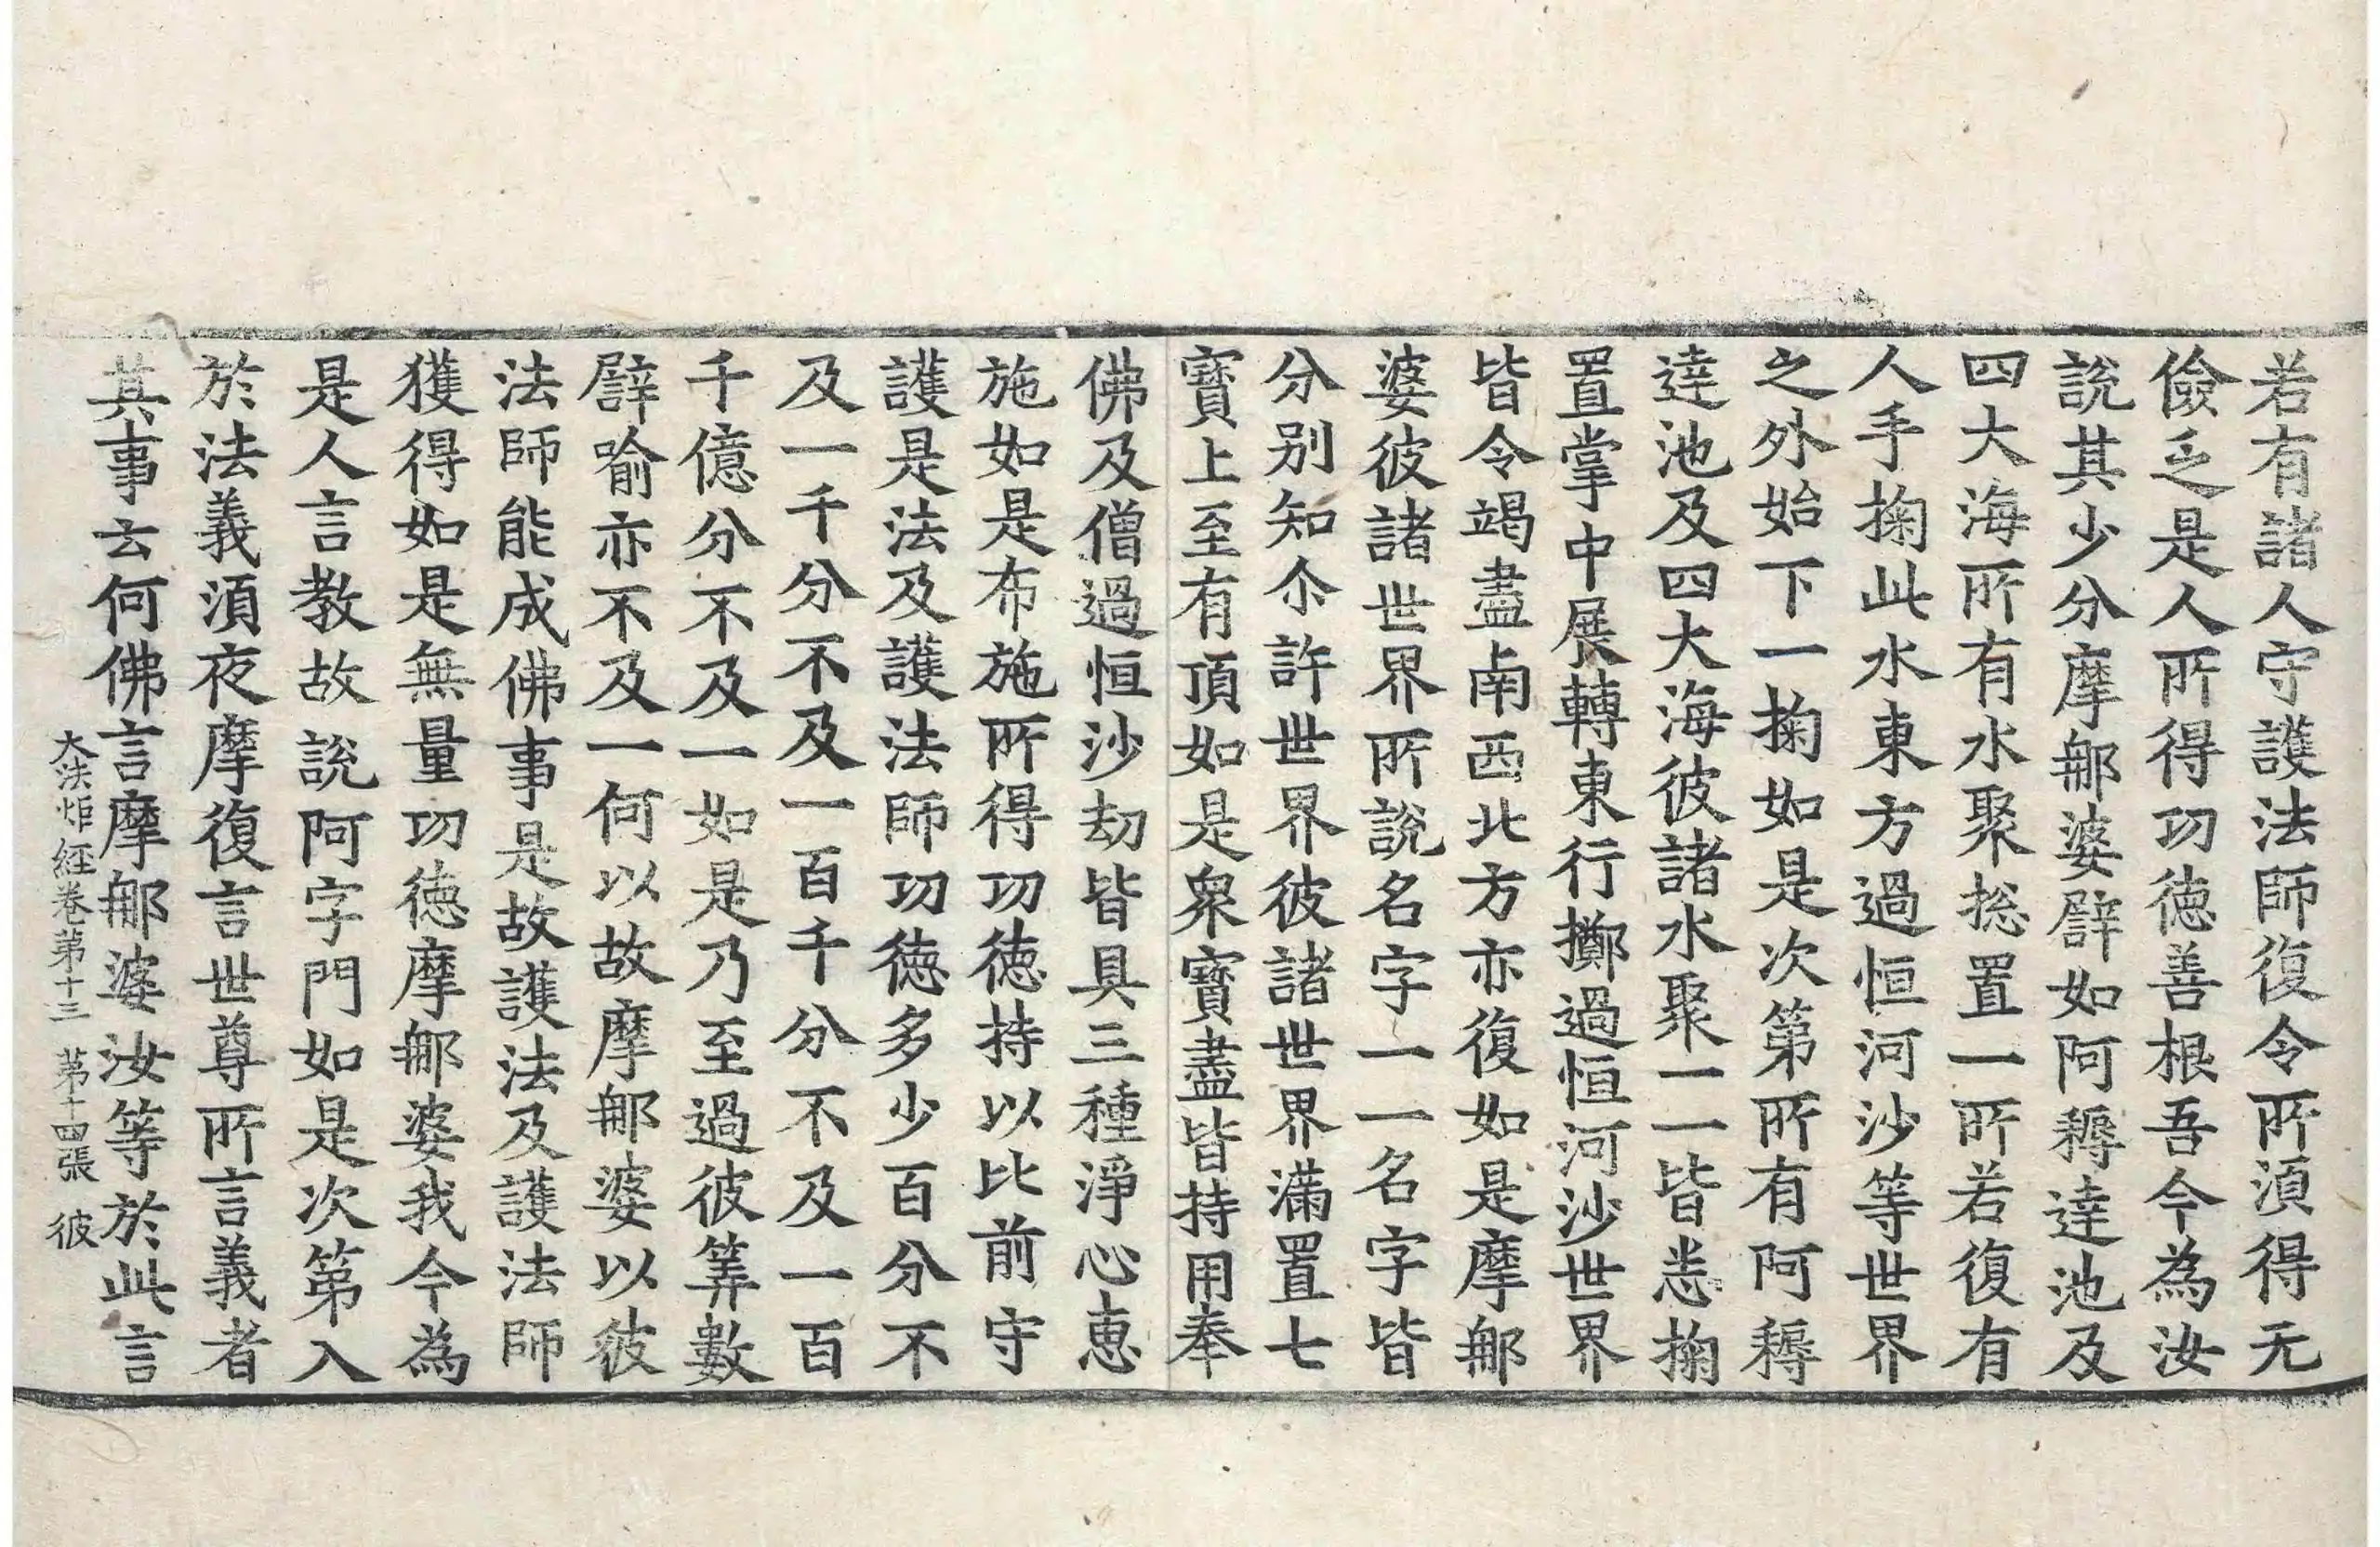 若有諸人守護法師復令所湏得无
儉乏是人所得功德善根吾今為汝
說其少分摩那婆譬如阿耨達池及
四大海所有水聚揔置一所若復有
人手掬此水東方過恒河沙等世界
之外始下一掬如是次第所有阿耨
達池及四大海彼諸水聚一一皆悉掬
置掌中展轉東行擲過恒河沙世界
皆令竭盡南西北方亦復如是摩那
婆彼諸世界所說名字一一名字皆
分別知尒許世界彼諸世界滿置七
寶上至有頂如是衆寶盡皆持用奉
佛及僧過恒沙劫皆具三種淨心恵
施如是布施所得功德持以比前守
護是法及護法師功德多少百分不
及一千分不及一百千分不及一百
千億分不及一如是乃至過彼筭數
譬喻亦不及一何以故摩那婆以彼
法師能成佛事是故護法及護法師
獲得如是無量功德摩那婆我今為
是人言教故說阿字門如是次第入
於法義湏夜摩復言世尊所言義者
其事云何佛言摩那婆汝等於此言
大法炬経卷第十三 第十四張 彼